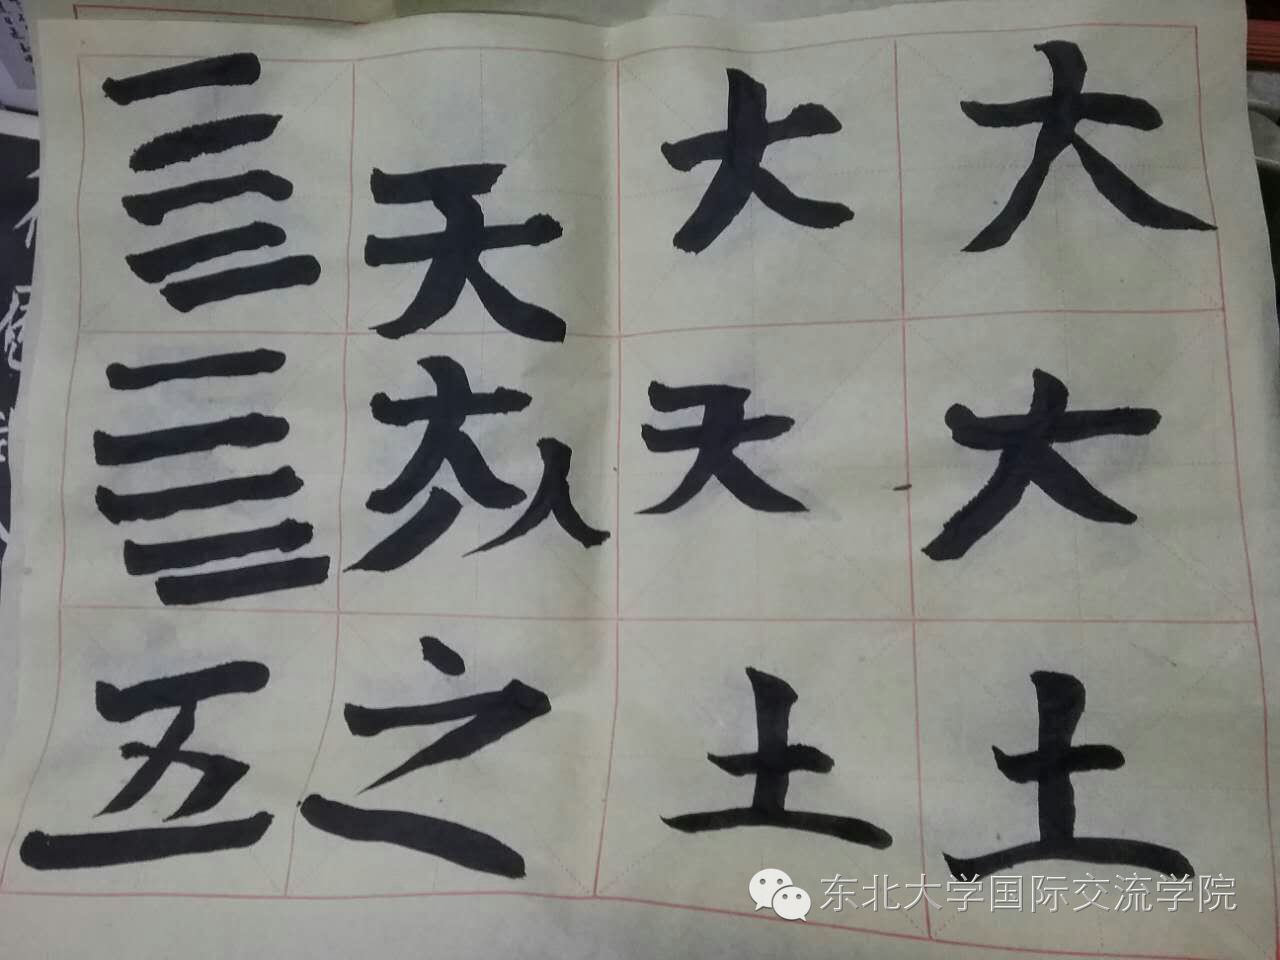 大大土
大天土
天大人之
五
东北大学国际交流学院